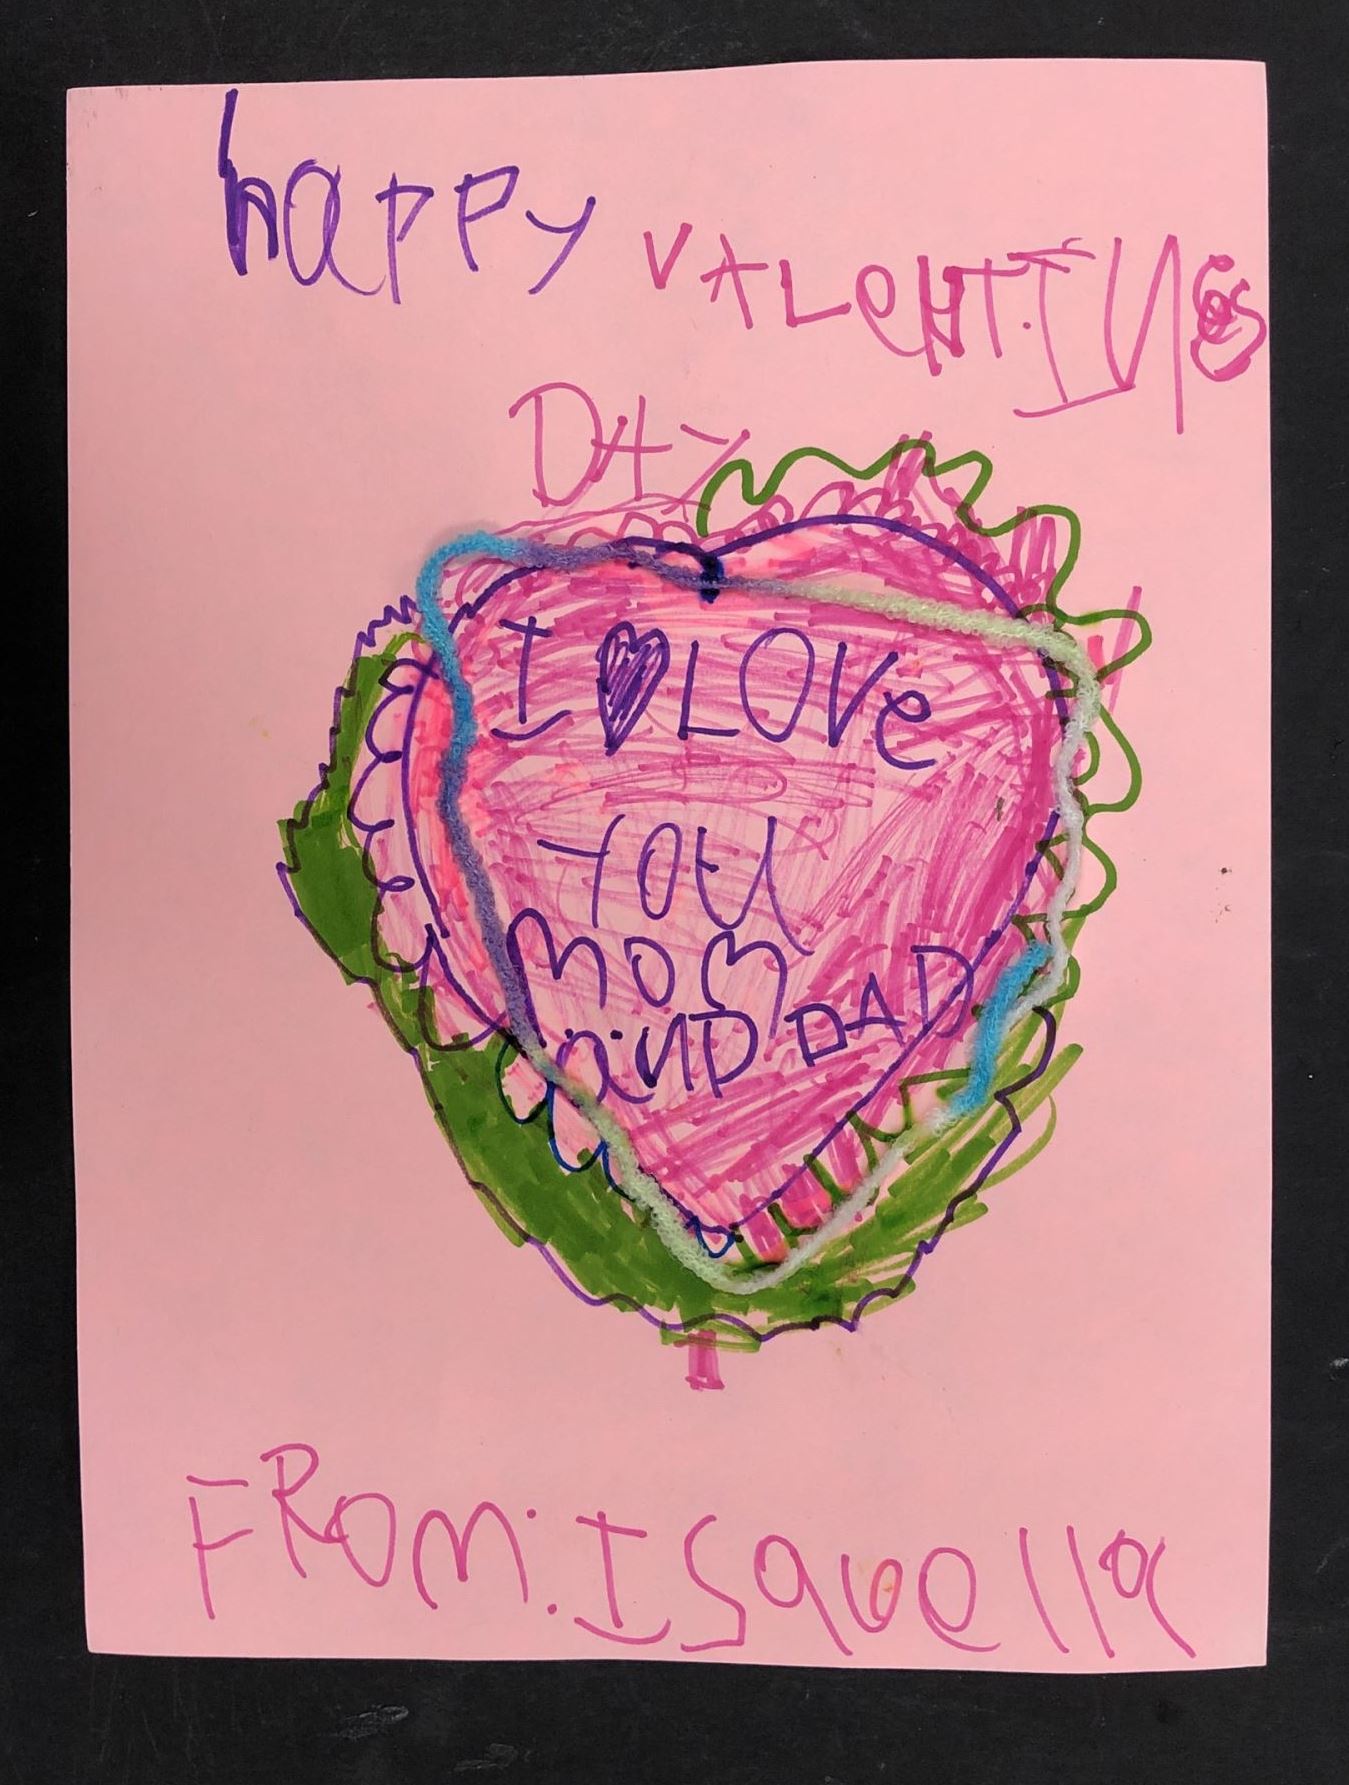 happy
VALeNTINes
DAY
I ♥ LOVe
YOU
MOM
aND DAD
FROM: ISavella